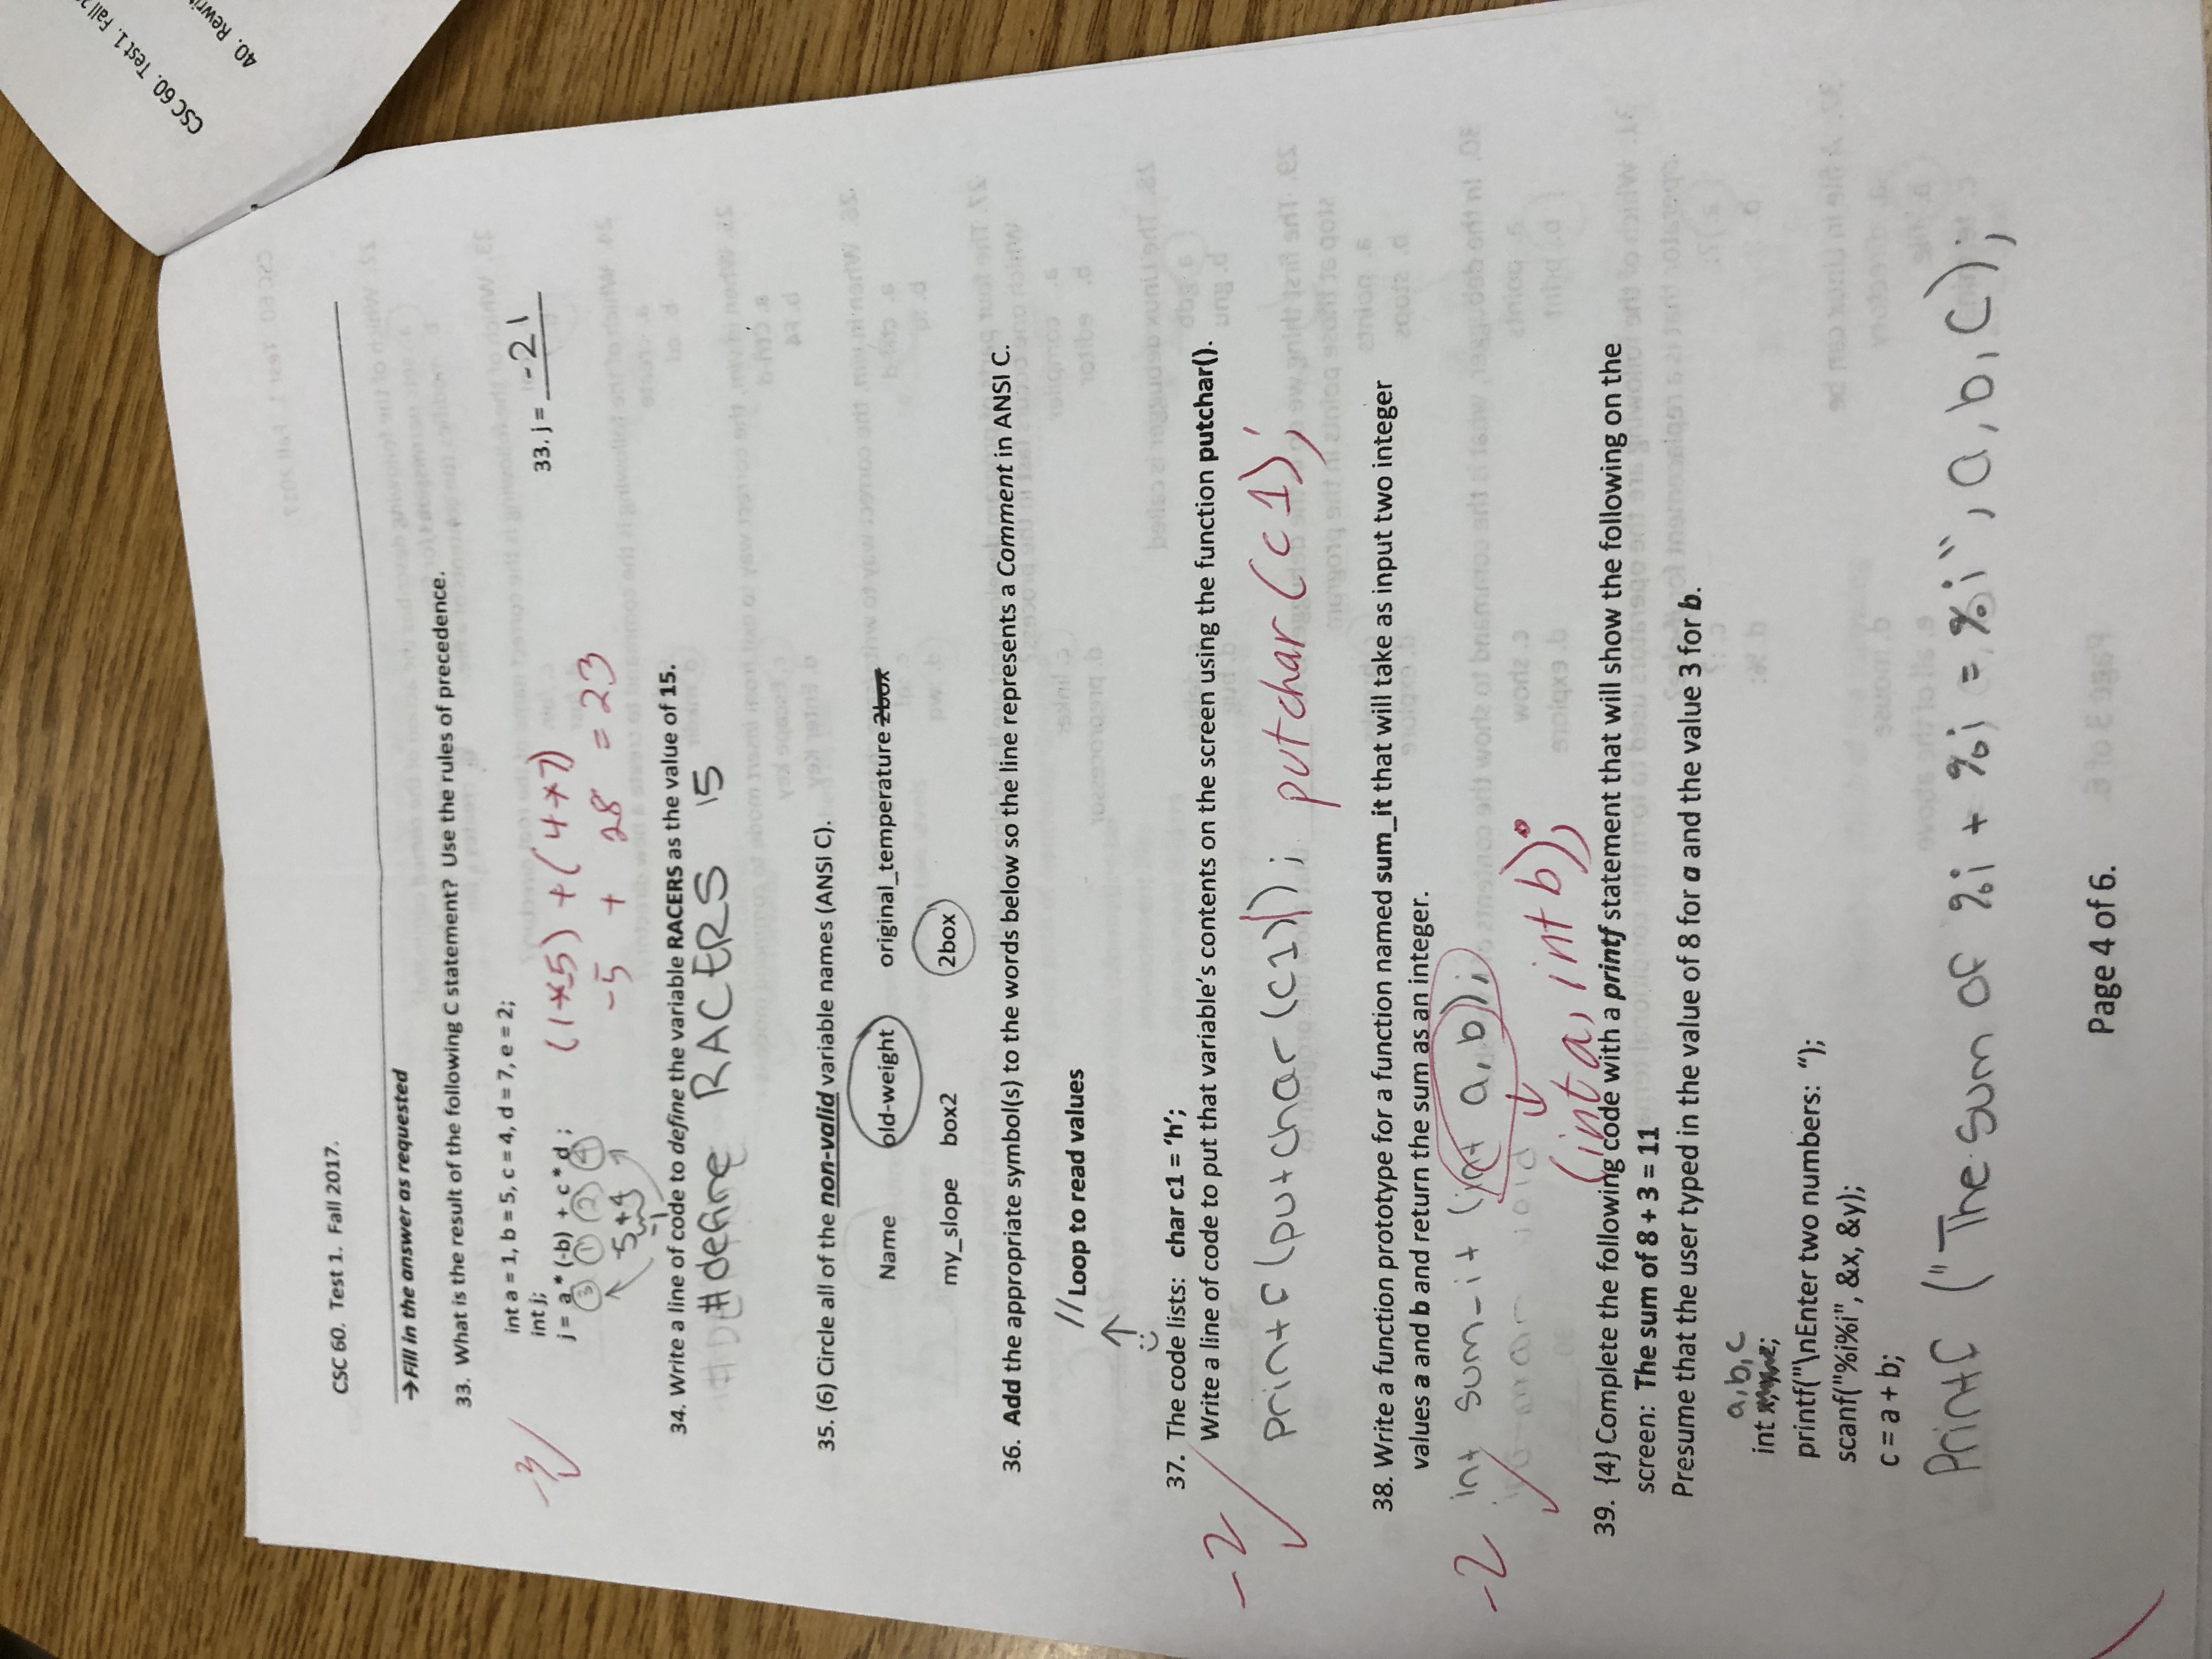 CSC 60. Test 1. Fall
40. Rewri
CSC 60. Test 1. Fall 2017.
→Fill in the answer as requested
33. What is the result of the following C statement? Use the rules of precedence.
int a = 1, b = 5, c = 4, d = 7, e = 2;
int j;
j = a * (-b) + c * d ;
33. j = -21
-3
3 1 2 4
-5+4
-1
(1*-5) + (4*7)
-5 + 28 = 23
34. Write a line of code to define the variable RACERS as the value of 15.
#define RACERS 15
35. (6) Circle all of the non-valid variable names (ANSI C).
Name old-weight original_temperature 2box
my_slope box2 2box
36. Add the appropriate symbol(s) to the words below so the line represents a Comment in ANSI C.
// Loop to read values
37. The code lists: char c1 = ‘h’;
Write a line of code to put that variable’s contents on the screen using the function putchar().
-2
printf(putchar(c1)); putchar(c1);
38. Write a function prototype for a function named sum_it that will take as input two integer
values a and b and return the sum as an integer.
-2 int sum_it (int a, b);
(int a, int b);
39. {4} Complete the following code with a printf statement that will show the following on the
screen: The sum of 8 + 3 = 11
Presume that the user typed in the value of 8 for a and the value 3 for b.
a,b,c
int
printf("\nEnter two numbers: “);
scanf("%i%i", &x, &y);
c = a + b;
Printf ("The sum of %i + %i = %i", a, b, c);
Page 4 of 6.